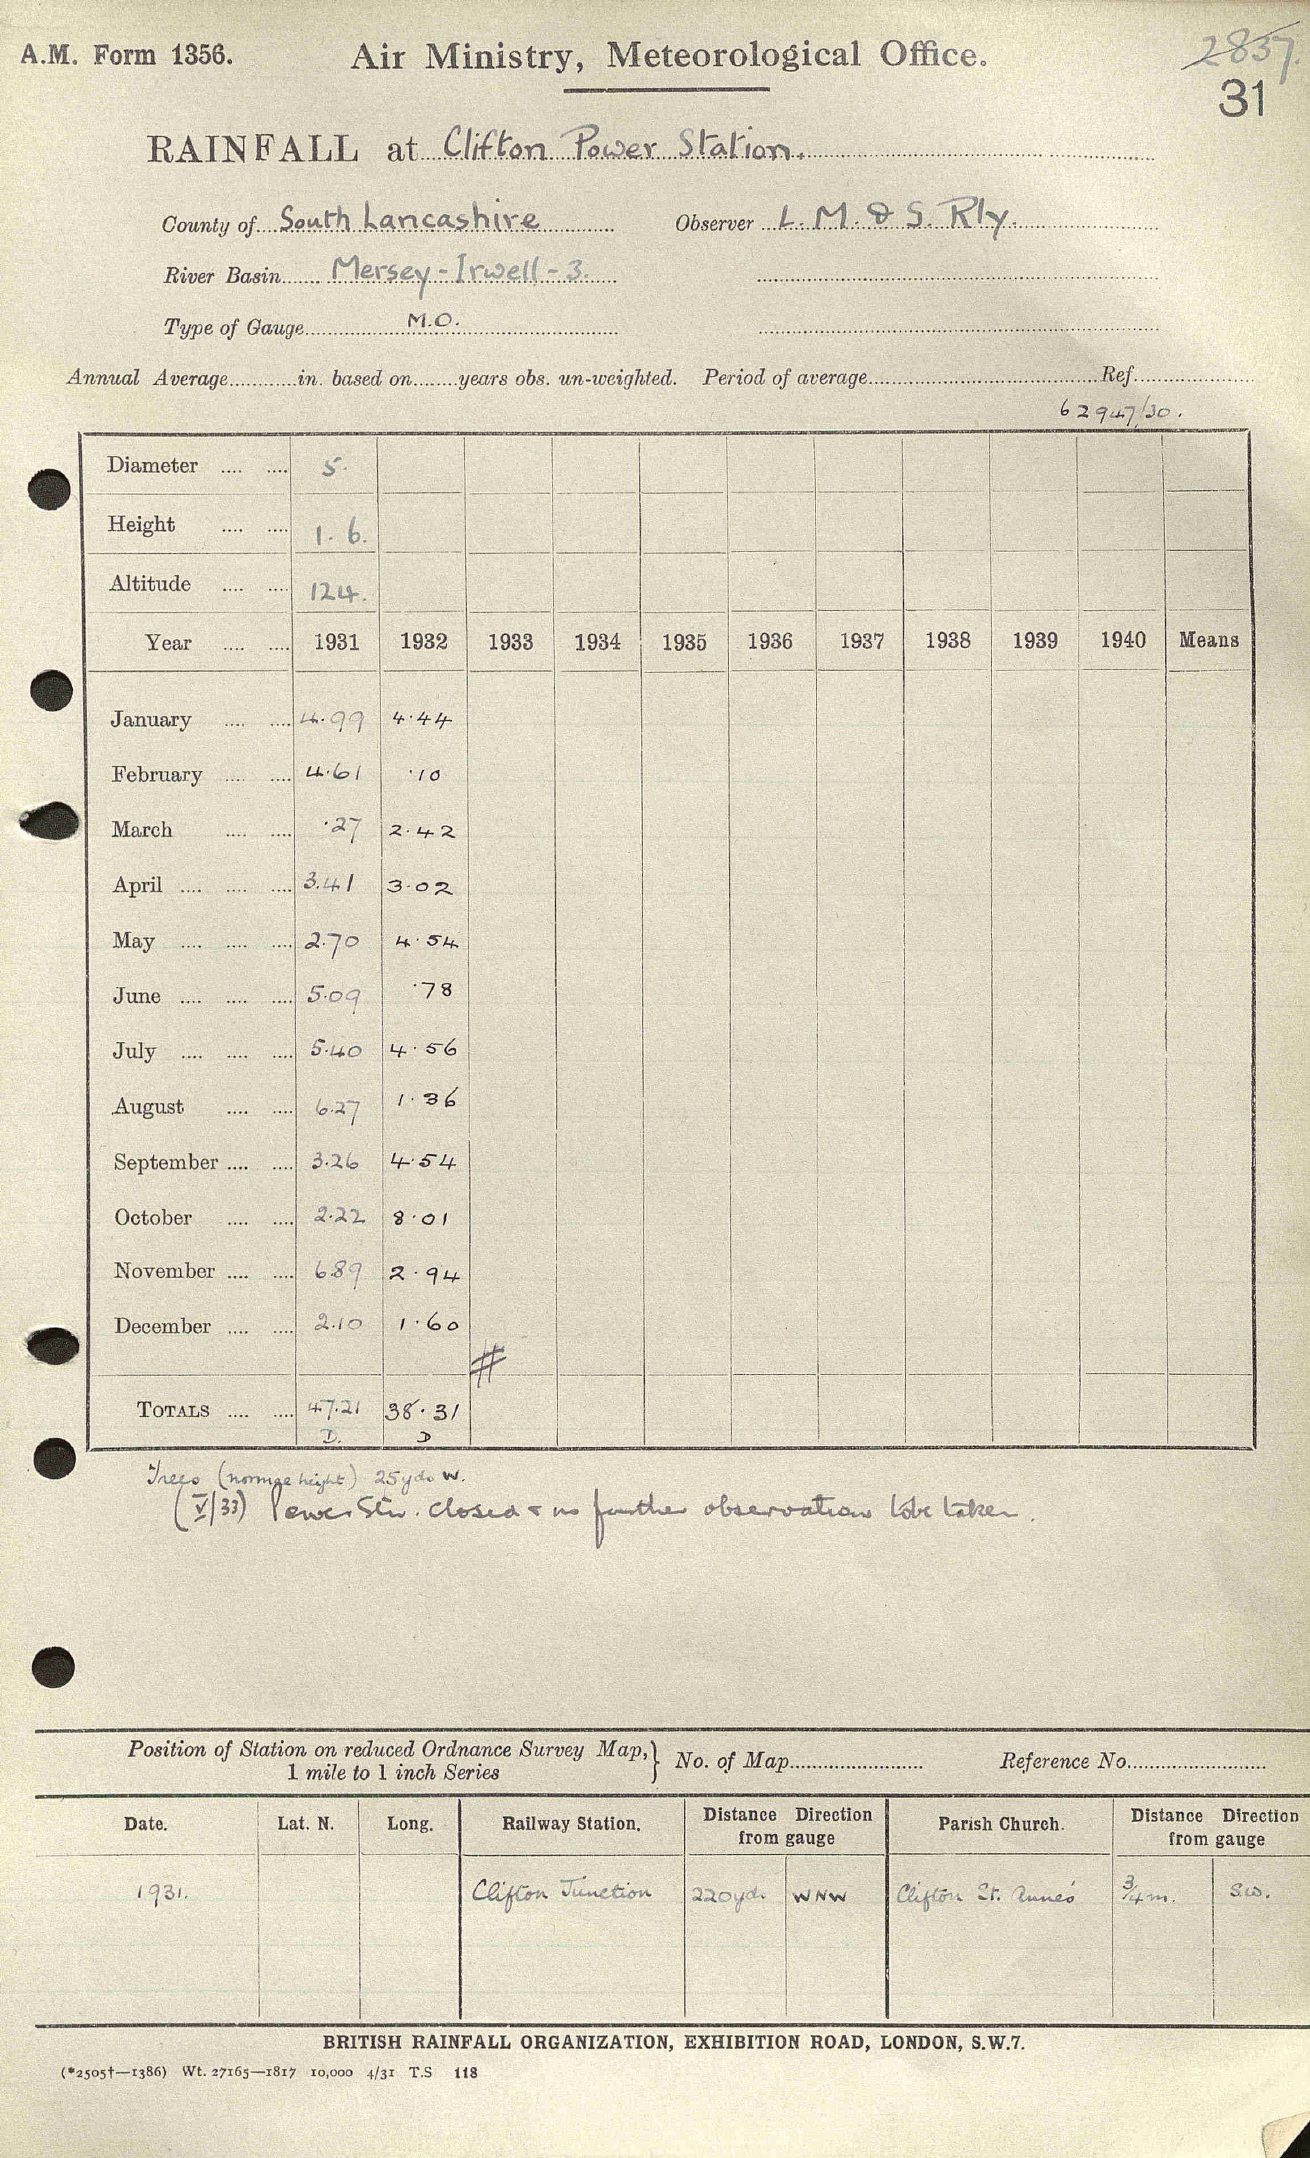 A.M. Form 1356.
Air Ministry, Meteorological Office.
2837.
31
RAINFALL at Clifton Power Station.
County of South Lancashire Observer L. M. & S. Rly.
River Basin Mersey - Irwell - 3.
Type of Gauge M.O.
Annual Average in. based on years obs. un-weighted. Period of average Ref.
62947/30.
Diameter 5.
Height 1. 6.
Altitude 124.
Year 1931 1932 1933 1934 1935 1936 1937 1938 1939 1940 Means
January 4.99 4.44
February 4.61 .10
March .27 2.42
April 3.41 3.02
May 2.70 4.54
June 5.09 .78
July 5.40 4.56
August 6.27 1.36
September 3.26 4.54
October 2.22 8.01
November 6.89 2.94
December 2.10 1.60
#
TOTALS 47.21 38.31
D. D
Trees (normae height) 25 yds W.
(V/33) Power Stn. closed & no further observation to be taken.
Position of Station on reduced Ordnance Survey Map, } No. of Map Reference No.
1 mile to 1 inch Series
Date. Lat. N. Long. Railway Station. Distance Direction from gauge Parish Church. Distance Direction from gauge
1931. Clifton Junction 220 yd. WNW Clifton St. Anne's 3/4 m. S.W.
BRITISH RAINFALL ORGANIZATION, EXHIBITION ROAD, LONDON, S.W.7.
(*2505†—1386) Wt. 27165—1817 10,000 4/31 T.S 118